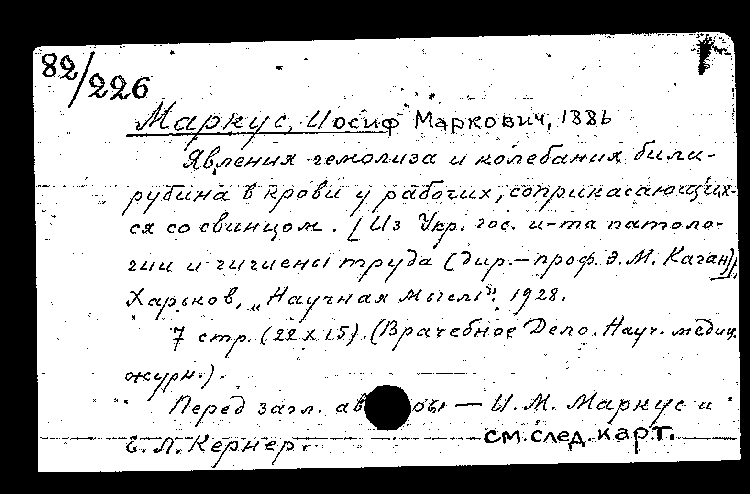 82/226
Маркус, Иосиф Маркович, 1886
Явления гемолиза и колебания били-
рубина в крови у рабочих, соприкасающих-
ся со свинцом. [Из Укр. гос. и-та патоло-
гии и гигиены труда (дир. – проф. Э. М. Каган)],
Харьков, „Научная мысль", 1928.
7 стр. (22х15). (Врачебное Дело. Науч. медиц.
журн.).
Перед загл. ав ры — И. М. Маркус и
Л. Кернер.
см. след. карт.